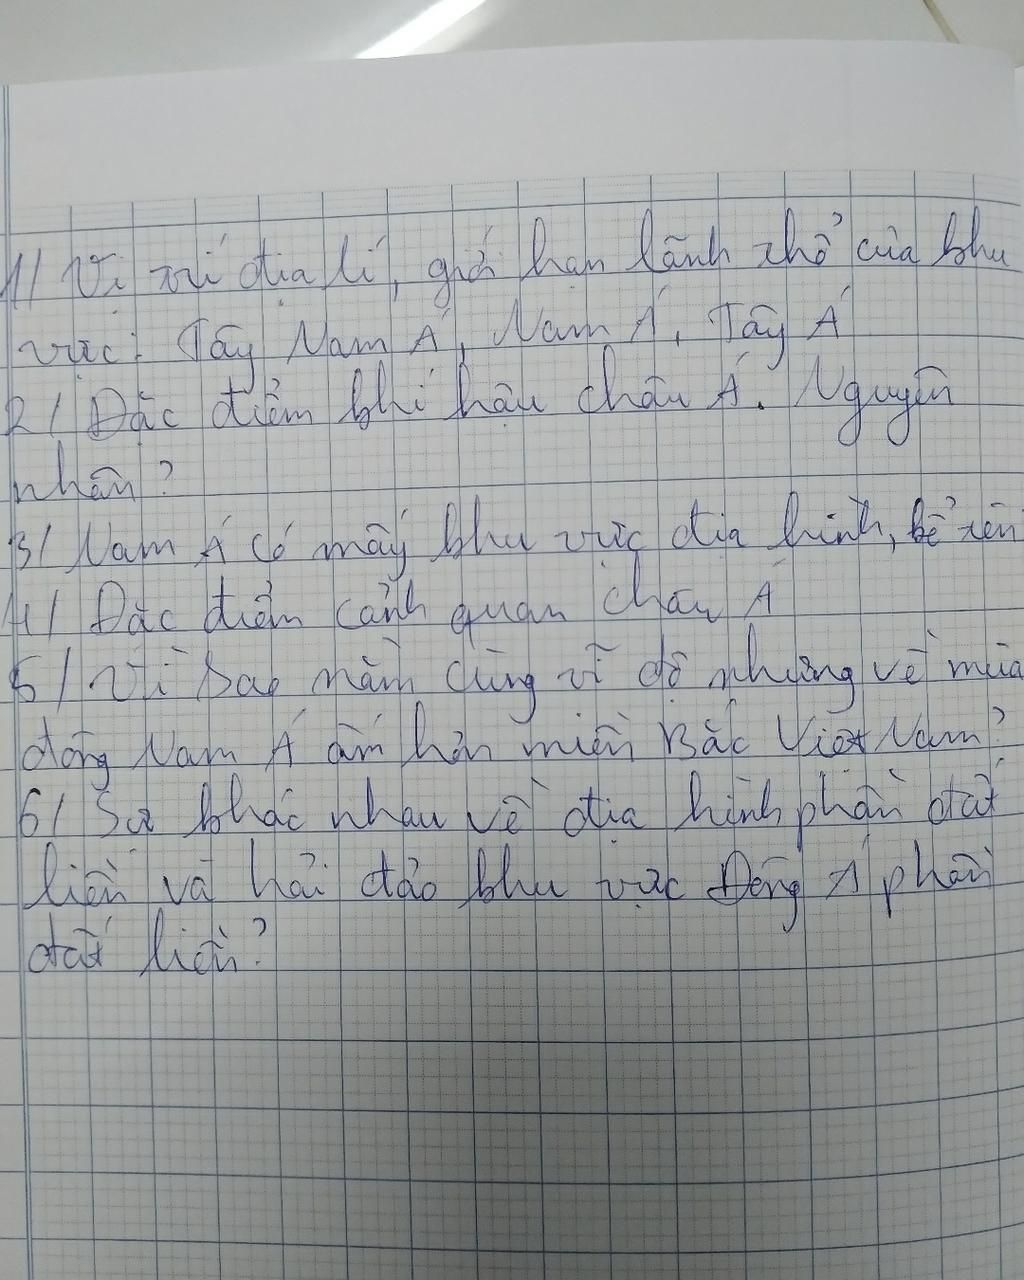 1/ Vị trí địa lí, giới hạn lãnh thổ của khu
vực: Tây Nam Á, Nam Á, Tây Á
2/ Đặc điểm khí hậu châu Á. Nguyên
nhân?
3/ Nam Á có mấy khu vực địa hình, kể tên
4/ Đặc điểm cảnh quan châu Á
5/ Vì sao nằm cùng vĩ độ nhưng về mùa
đông Nam Á ấm hơn miền Bắc Việt Nam?
6/ Sự khác nhau về địa hình phần đất
liền và hải đảo khu vực Đông Á phần
đất liền?